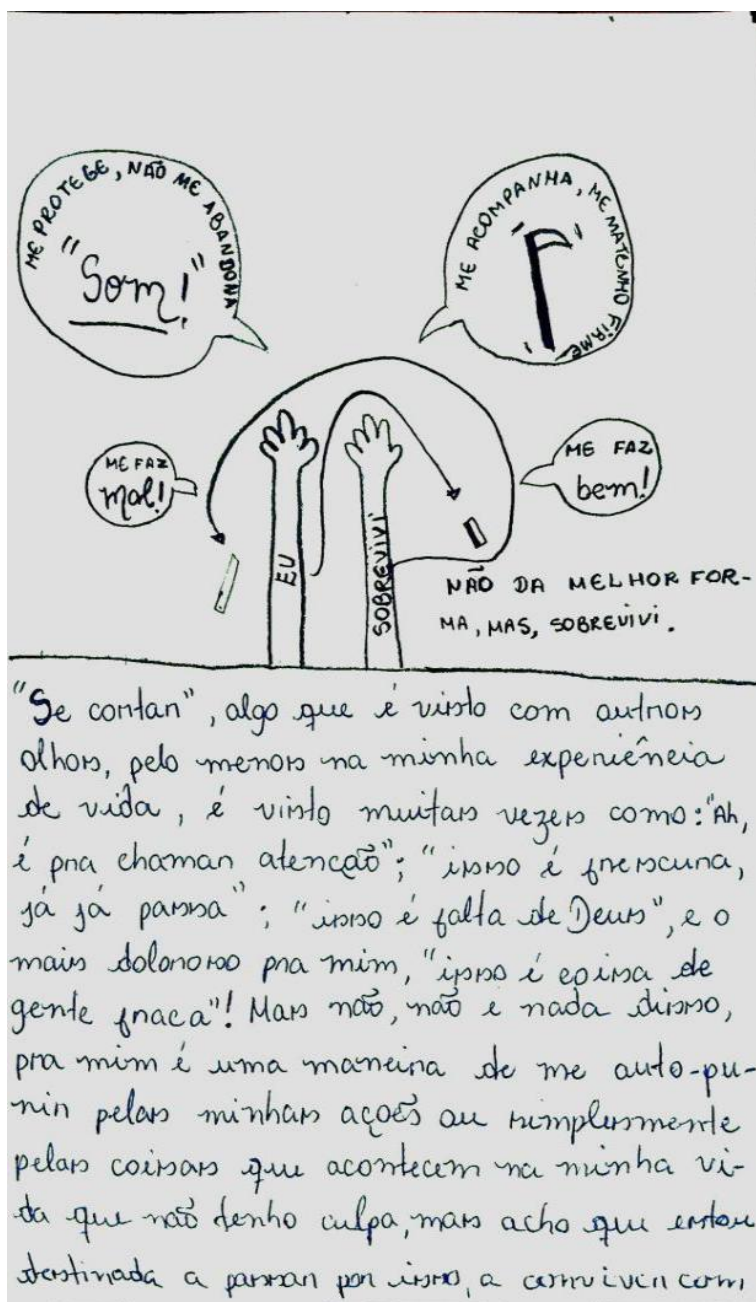 ME PROTEGE, NÃO ME ABANDONA
"Som!"
ME ACOMPANHA, ME MATENHO FIRME
ME FAZ
mal!
ME FAZ
bem!
EU
SOBREVIVI
NÃO DA MELHOR FOR-
MA, MAS, SOBREVIVI.
"Se cortar", algo que é visto com outros
olhos, pelo menos na minha experiência
de vida, é visto muitas vezes como: "Ah,
é pra chamar atenção"; "isso é frescura,
já já passa"; "isso é falta de Deus", e o
mais doloroso pra mim, "isso é coisa de
gente fraca"! Mas não, não e nada disso,
pra mim é uma maneira de me auto-pu-
nir pelas minhas ações ou simplesmente
pelas coisas que acontecem na minha vi-
da que não tenho culpa, mas acho que estou
destinada a passar por isso, a conviver com